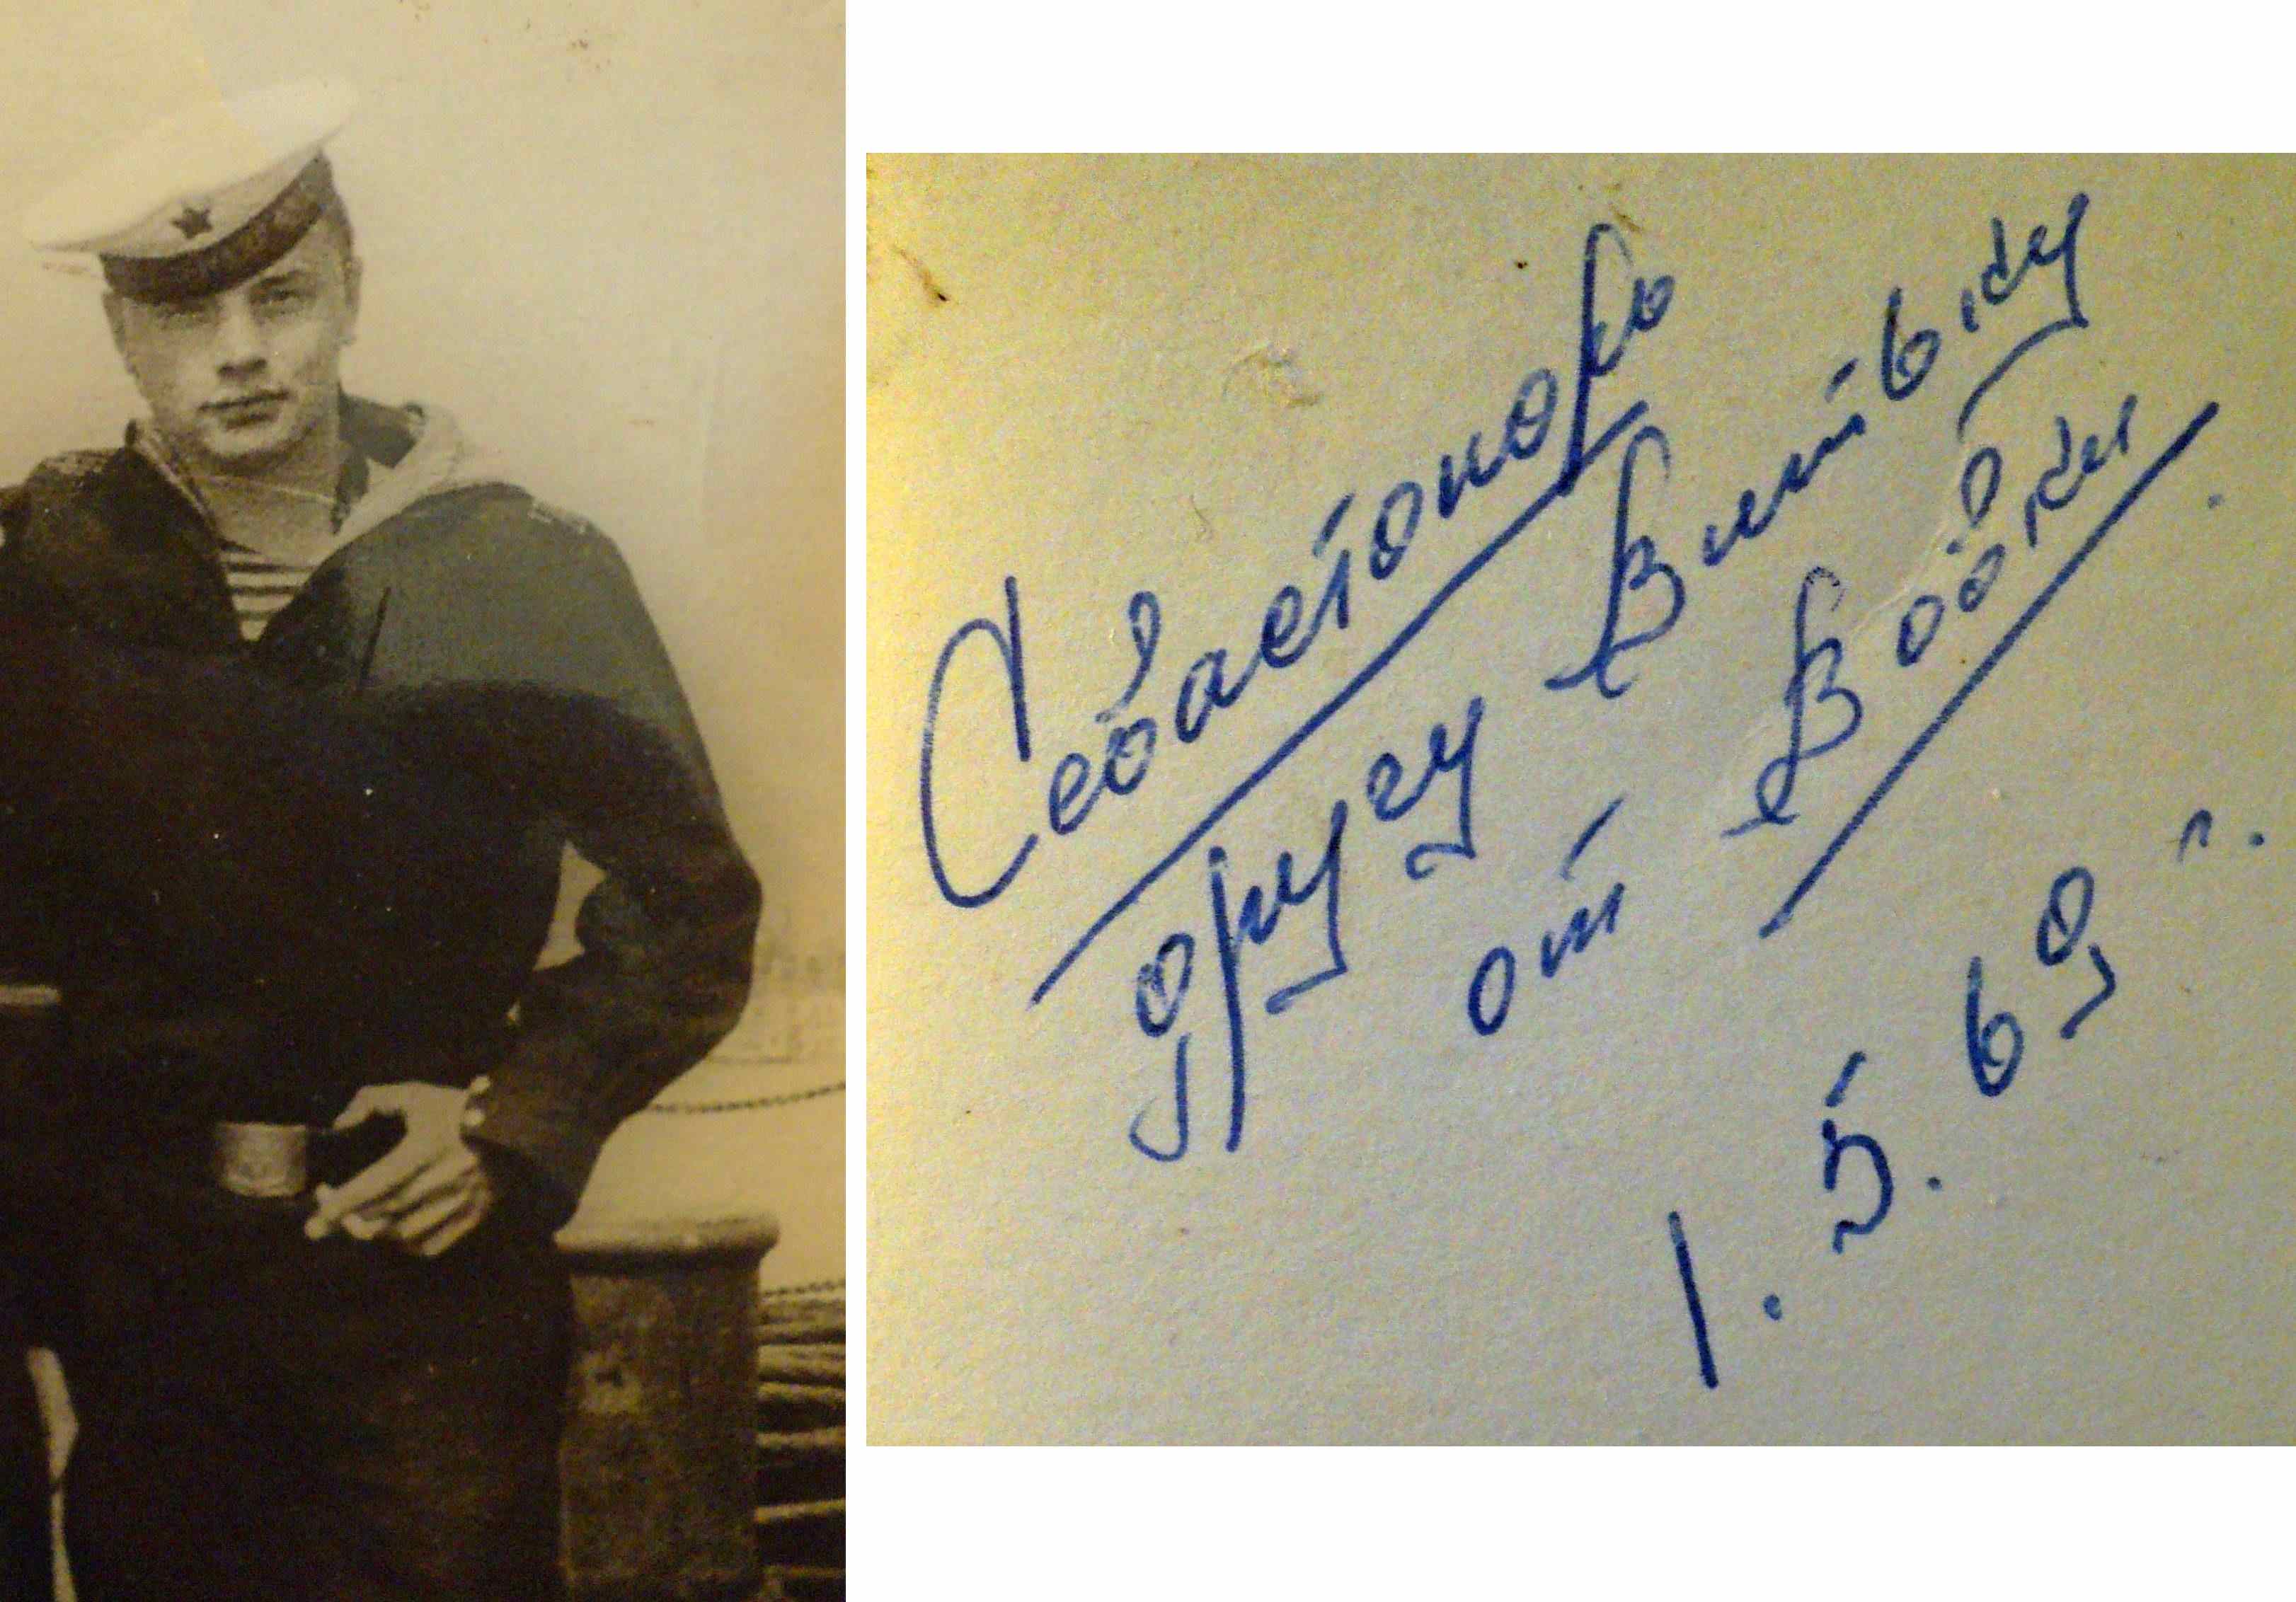 Севастополь
другу Витьку
от Вовки
1.5.69 г.